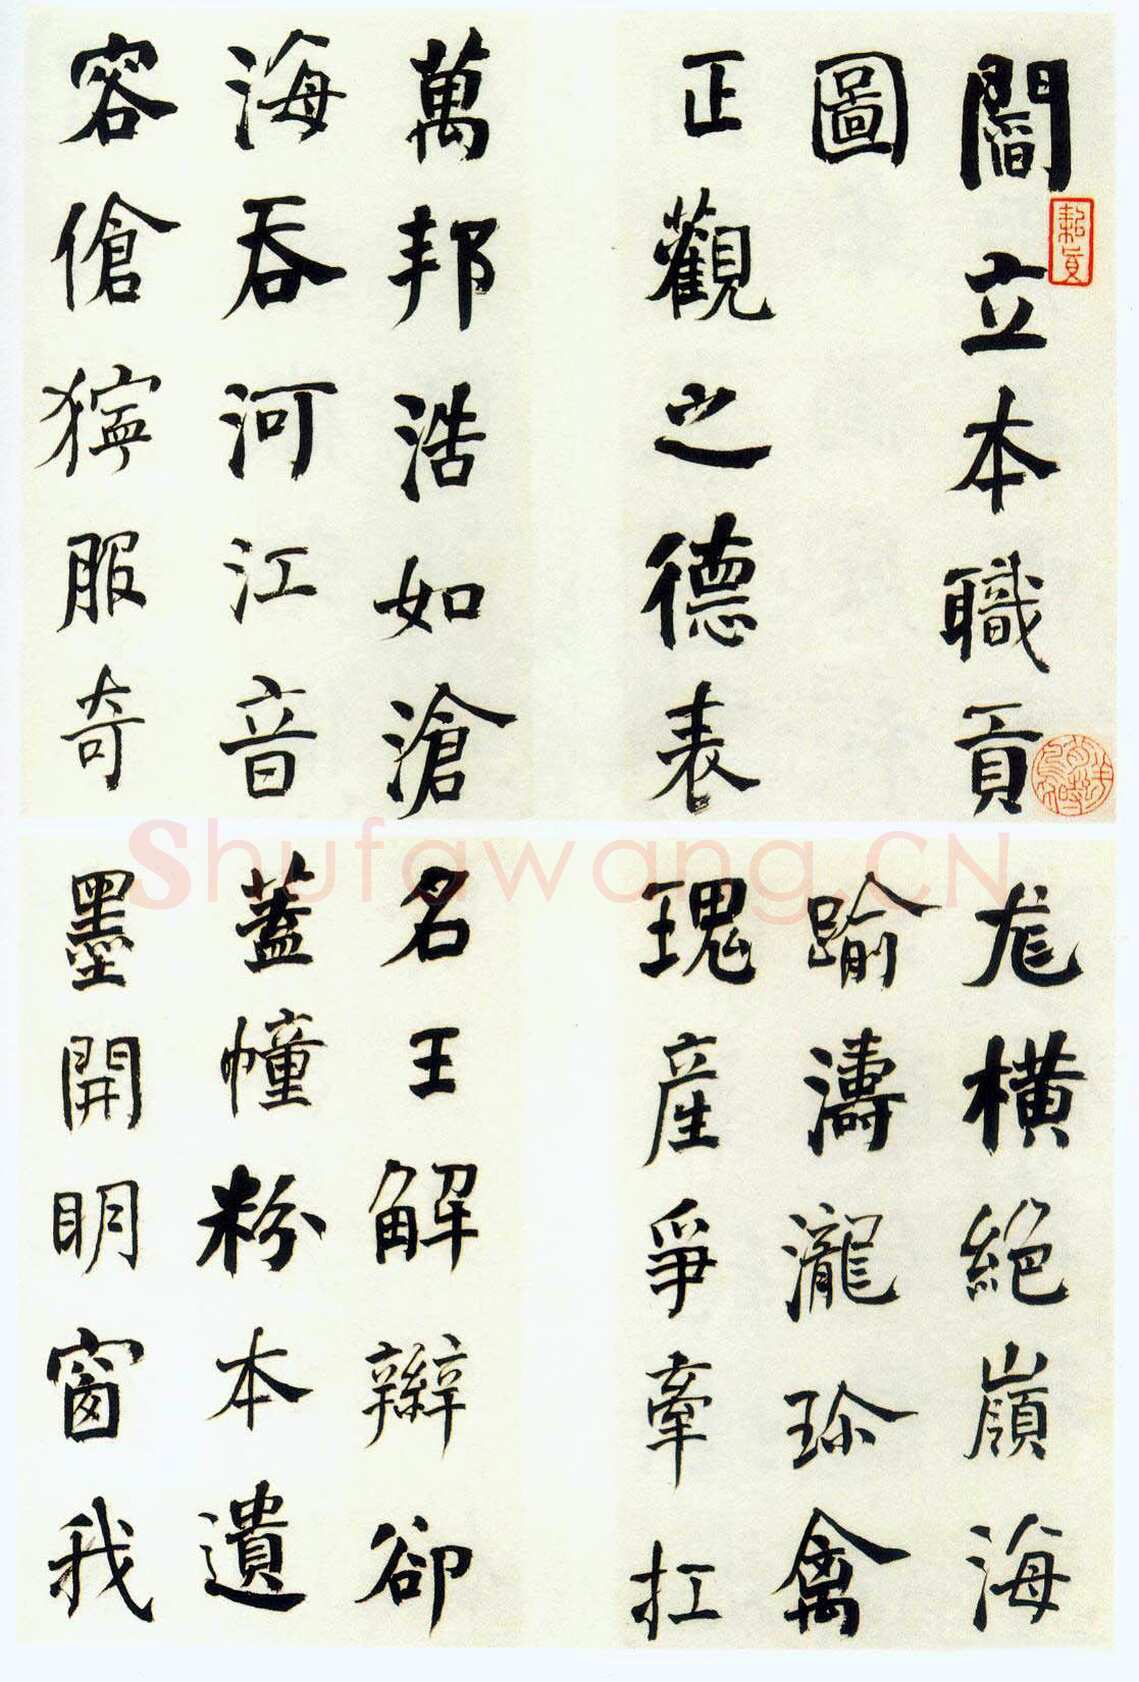 閻立本職貢
圖
正觀之德表
萬邦浩如滄
海吞河江音
容傖獰服奇
尨橫絕嶺海
踰濤瀧珎禽
瑰產爭牽扛
名王解辮卻
蓋幢粉本遺
墨開明窗我
Shufawang.CN